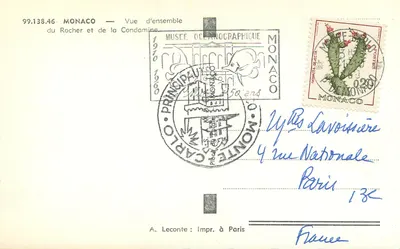 99.138.46 - MONACO — Vue d'ensemble
du Rocher et de la Condamine.
MUSEE OCEANOGRAPHIQUE
1910
1960
MONACO
50 ans
MONTE-CARLO
0,20
MONACO
Lavoissière
4 rue Nationale
Paris 13e
France
A. Leconte : Impr. à Paris